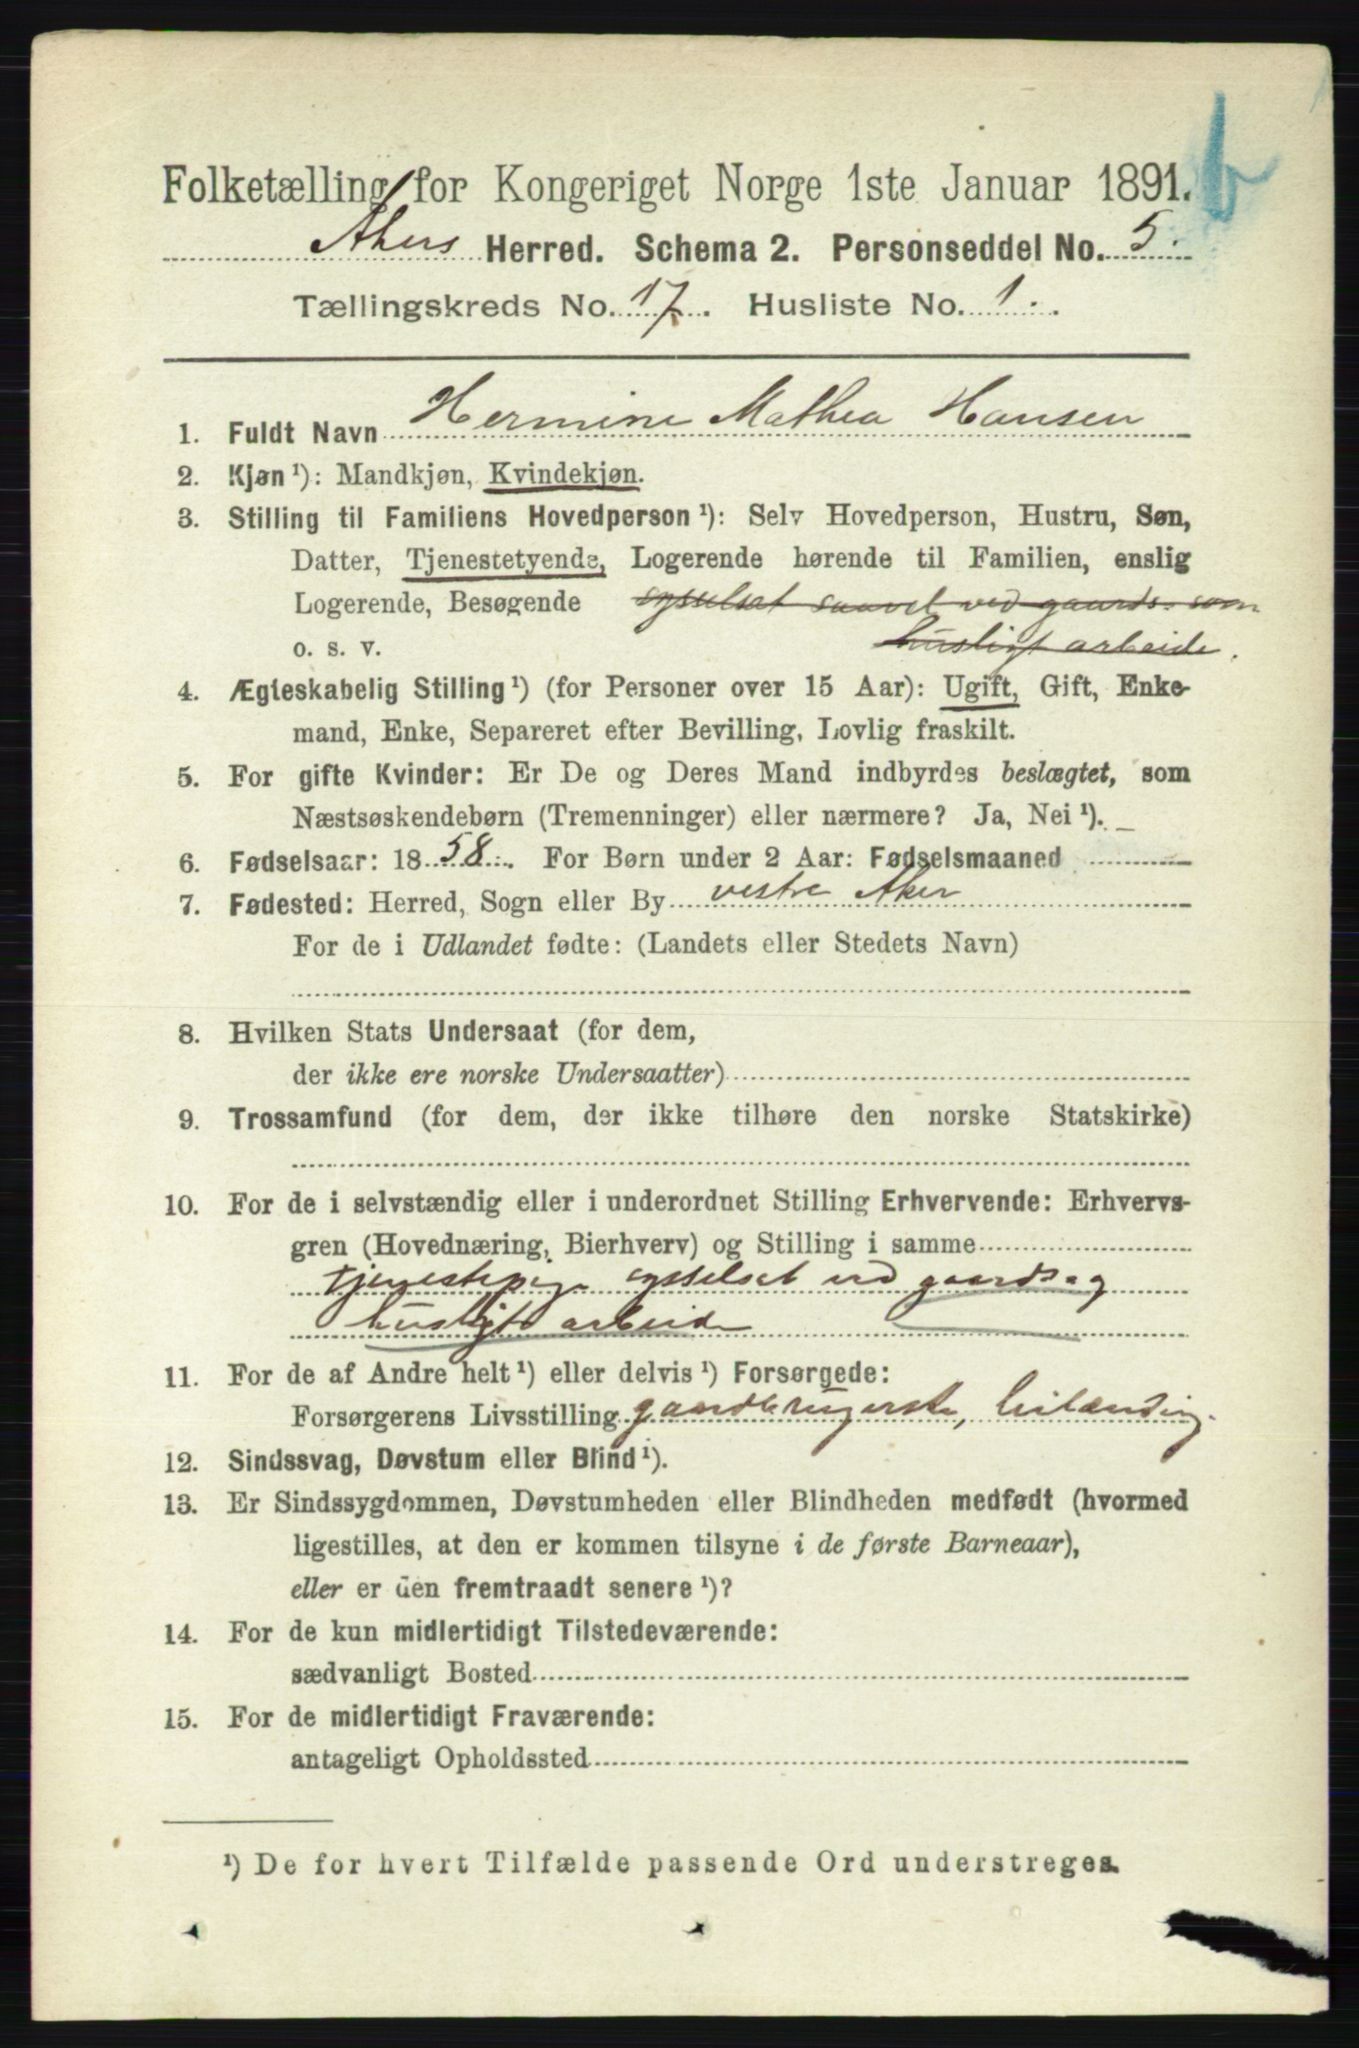 b
Folketælling for Kongeriget Norge 1ste Januar 1891.
Akers Herred. Schema 2. Personseddel No. 5.
Tællingskreds No. 17. Husliste No. 1.
1. Fuldt Navn Hermine Mathea Hansen
2. Kjøn ¹): Mandkjøn, Kvindekjøn.
3. Stilling til Familiens Hovedperson ¹): Selv Hovedperson, Hustru, Søn,
Datter, Tjenestetyende, Logerende hørende til Familien, enslig
Logerende, Besøgende sysselsat saavel ved gaards- som
o. s. v. husligt arbeide.
4. Ægteskabelig Stilling ¹) (for Personer over 15 Aar): Ugift, Gift, Enke-
mand, Enke, Separeret efter Bevilling, Lovlig fraskilt.
5. For gifte Kvinder: Er De og Deres Mand indbyrdes beslægtet, som
Næstsøskendebørn (Tremenninger) eller nærmere? Ja, Nei ¹).
6. Fødselsaar: 1858. For Børn under 2 Aar: Fødselsmaaned
7. Fødested: Herred, Sogn eller By vestre Aker
For de i Udlandet fødte: (Landets eller Stedets Navn)
8. Hvilken Stats Undersaat (for dem,
der ikke ere norske Undersaatter)
9. Trossamfund (for dem, der ikke tilhøre den norske Statskirke)
10. For de i selvstændig eller i underordnet Stilling Erhvervende: Erhvervs-
gren (Hovednæring, Bierhverv) og Stilling i samme
tjenestepige sysselsat ved gaards og
husligt arbeide
11. For de af Andre helt ¹) eller delvis ¹) Forsørgede:
Forsørgerens Livsstilling gaardbrugerske,
12. Sindssvag, Døvstum eller Blind ¹).
13. Er Sindssygdommen, Døvstumheden eller Blindheden medfødt (hvormed
ligestilles, at den er kommen tilsyne i de første Barneaar),
eller er den fremtraadt senere ¹)?
14. For de kun midlertidigt Tilstedeværende:
sædvanligt Bosted
15. For de midlertidigt Fraværende:
antageligt Opholdssted
¹) De for hvert Tilfælde passende Ord understreges.